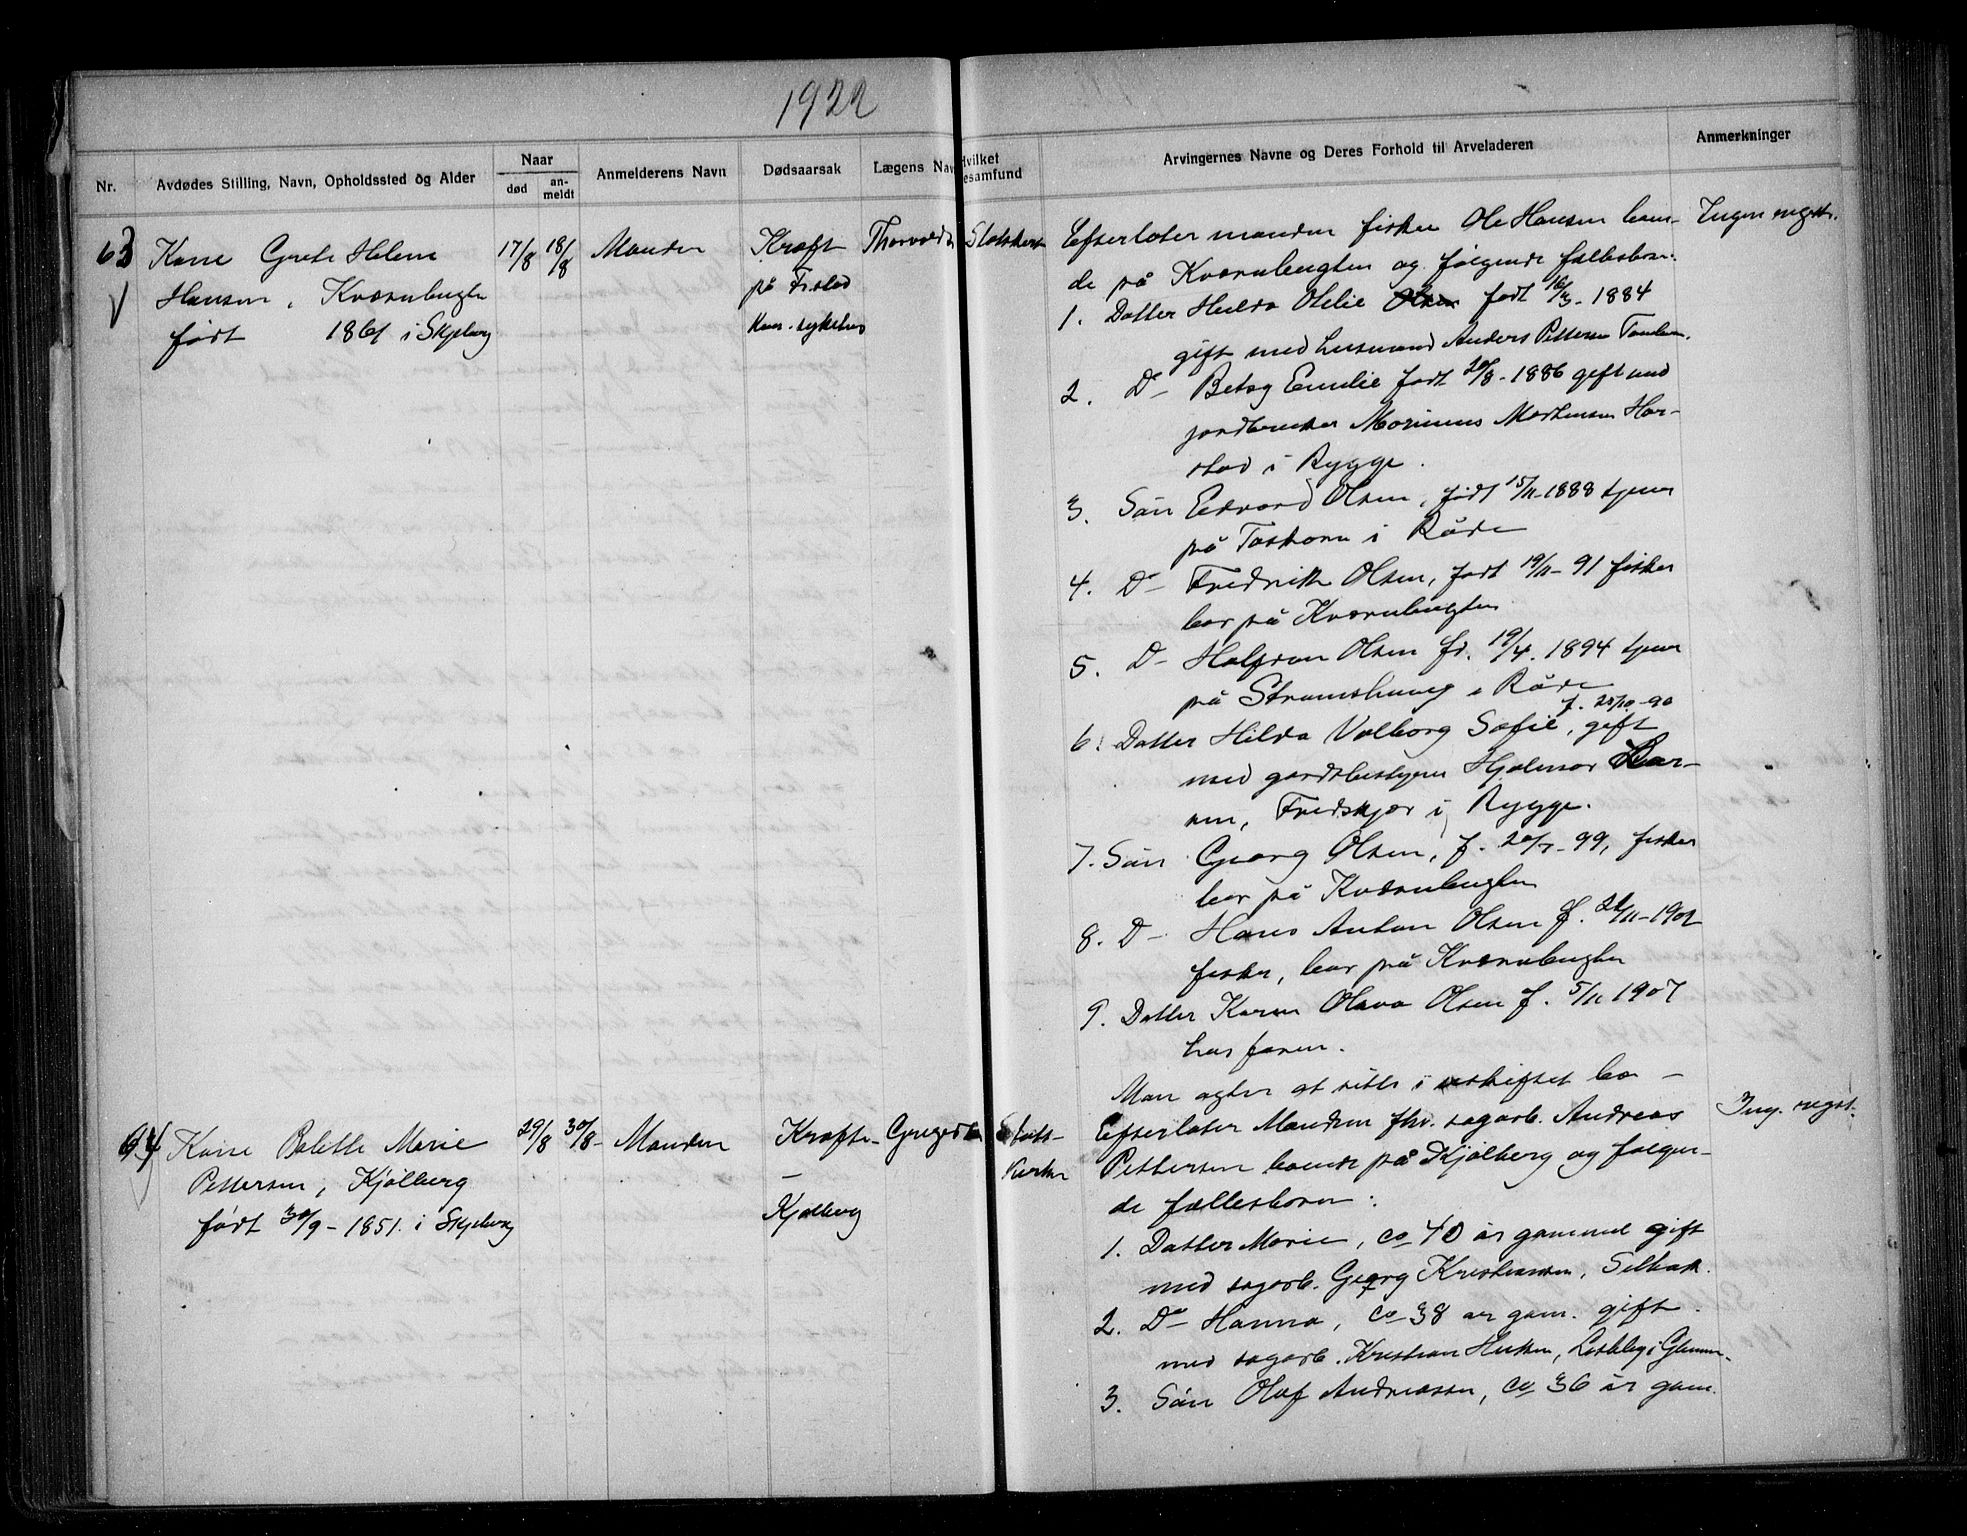 1922
Nr.
Avdødes Stilling, Navn, Opholdssted og Alder
Naar
død
an-
meldt
Anmelderens Navn
Dødsaarsak
Lægens Nav
Hvilket
esamfund
Arvingernes Navne og Deres Forhold til Arveladeren
Anmerkninger
63
Kone Grete Helene
Hansen, Kværnbugte
født 1861 i Skjeberg
17/8
18/8
Manden
Kræft
på Fr.stad
kom. sykehus
Statskirk
Efterlater manden fisker Ole Hansen boen-
de på Kværnbugten og følgende fællesbørn:
1. Datter Hulda Otilie Olsen født 16/3 - 1884
gift med Anders Pettersen
2. D- Betsy Emilie født 20/8 - 1886 gift med
jordbruker Marinius Martinsen Har-
stad i Rygge.
3. Søn Edvard Olsen, født 15/11 - 1888 tjener
på Taskorn i Råde
4. D- Fredrik Olsen, født 19/11 - 91 fisker
bor på Kværnbugten
5. D- Halfdan Olsen fr. 19/4. 1894 tjener
på Strømshaug i Råde
6. Datter Hilda Valborg Sofie, f. 20/10 - 90 gift
med gardsbestyrer Hjalmar Lar-
sen, Fredskjær i Rygge.
7. Søn Georg Olsen, f. 20/7 - 99, fisker
bor på Kværnbugten
8. D- Hans Anton Olsen f. 22/11 - 1902
fisker, bor på Kværnbugten
9. Datter Karen Olava Olsen f. 5/11 1907
hos faren.
Man agter at sitte i uskiftet bo -
Ingen regstr.
64
Kone Bolette Marie
Pettersen, Kjølberg
født 30/9 - 1851. i Skjeberg
29/8
30/8-
Manden
Kræft -
-
Kjølberg
Stats-
kirken
Efterlater Manden fhv. sagarb. Andreas
Pettersen boende på Kjølberg og følgen-
de fællesbørn:
1. Datter Marie, ca 40 år gammel gift
med sagarb. Georg Kristiansen, Selbak.
2. D- Hanna, ca 38 år gam. gift
med sagarb. Kristian i Glemm-
3. Søn Olaf Andreassen, ca 36 år gam.
Ing. regst.